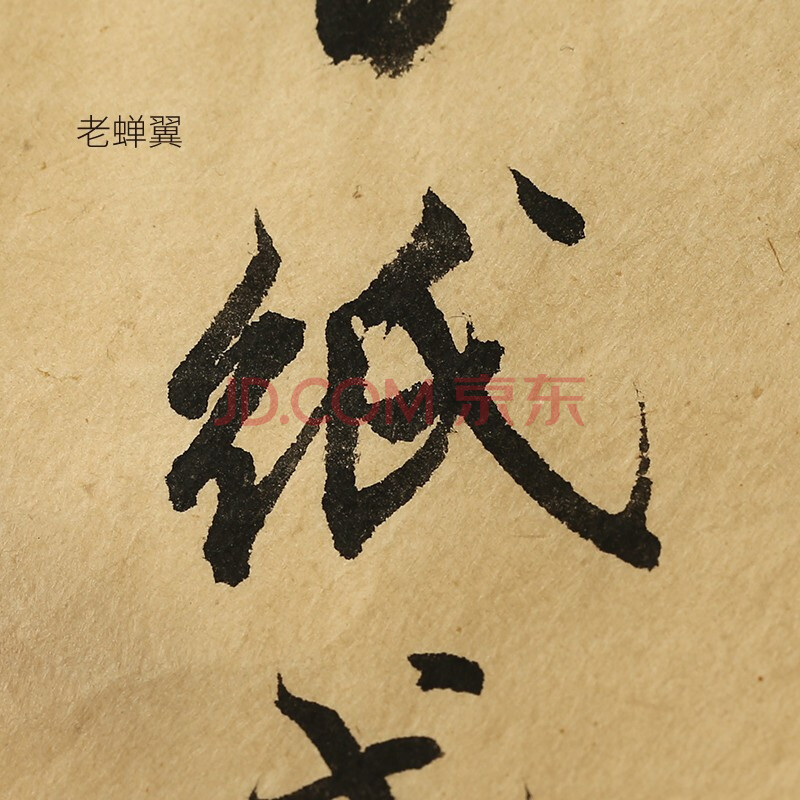 老蝉翼
纸
JD.COM 京东